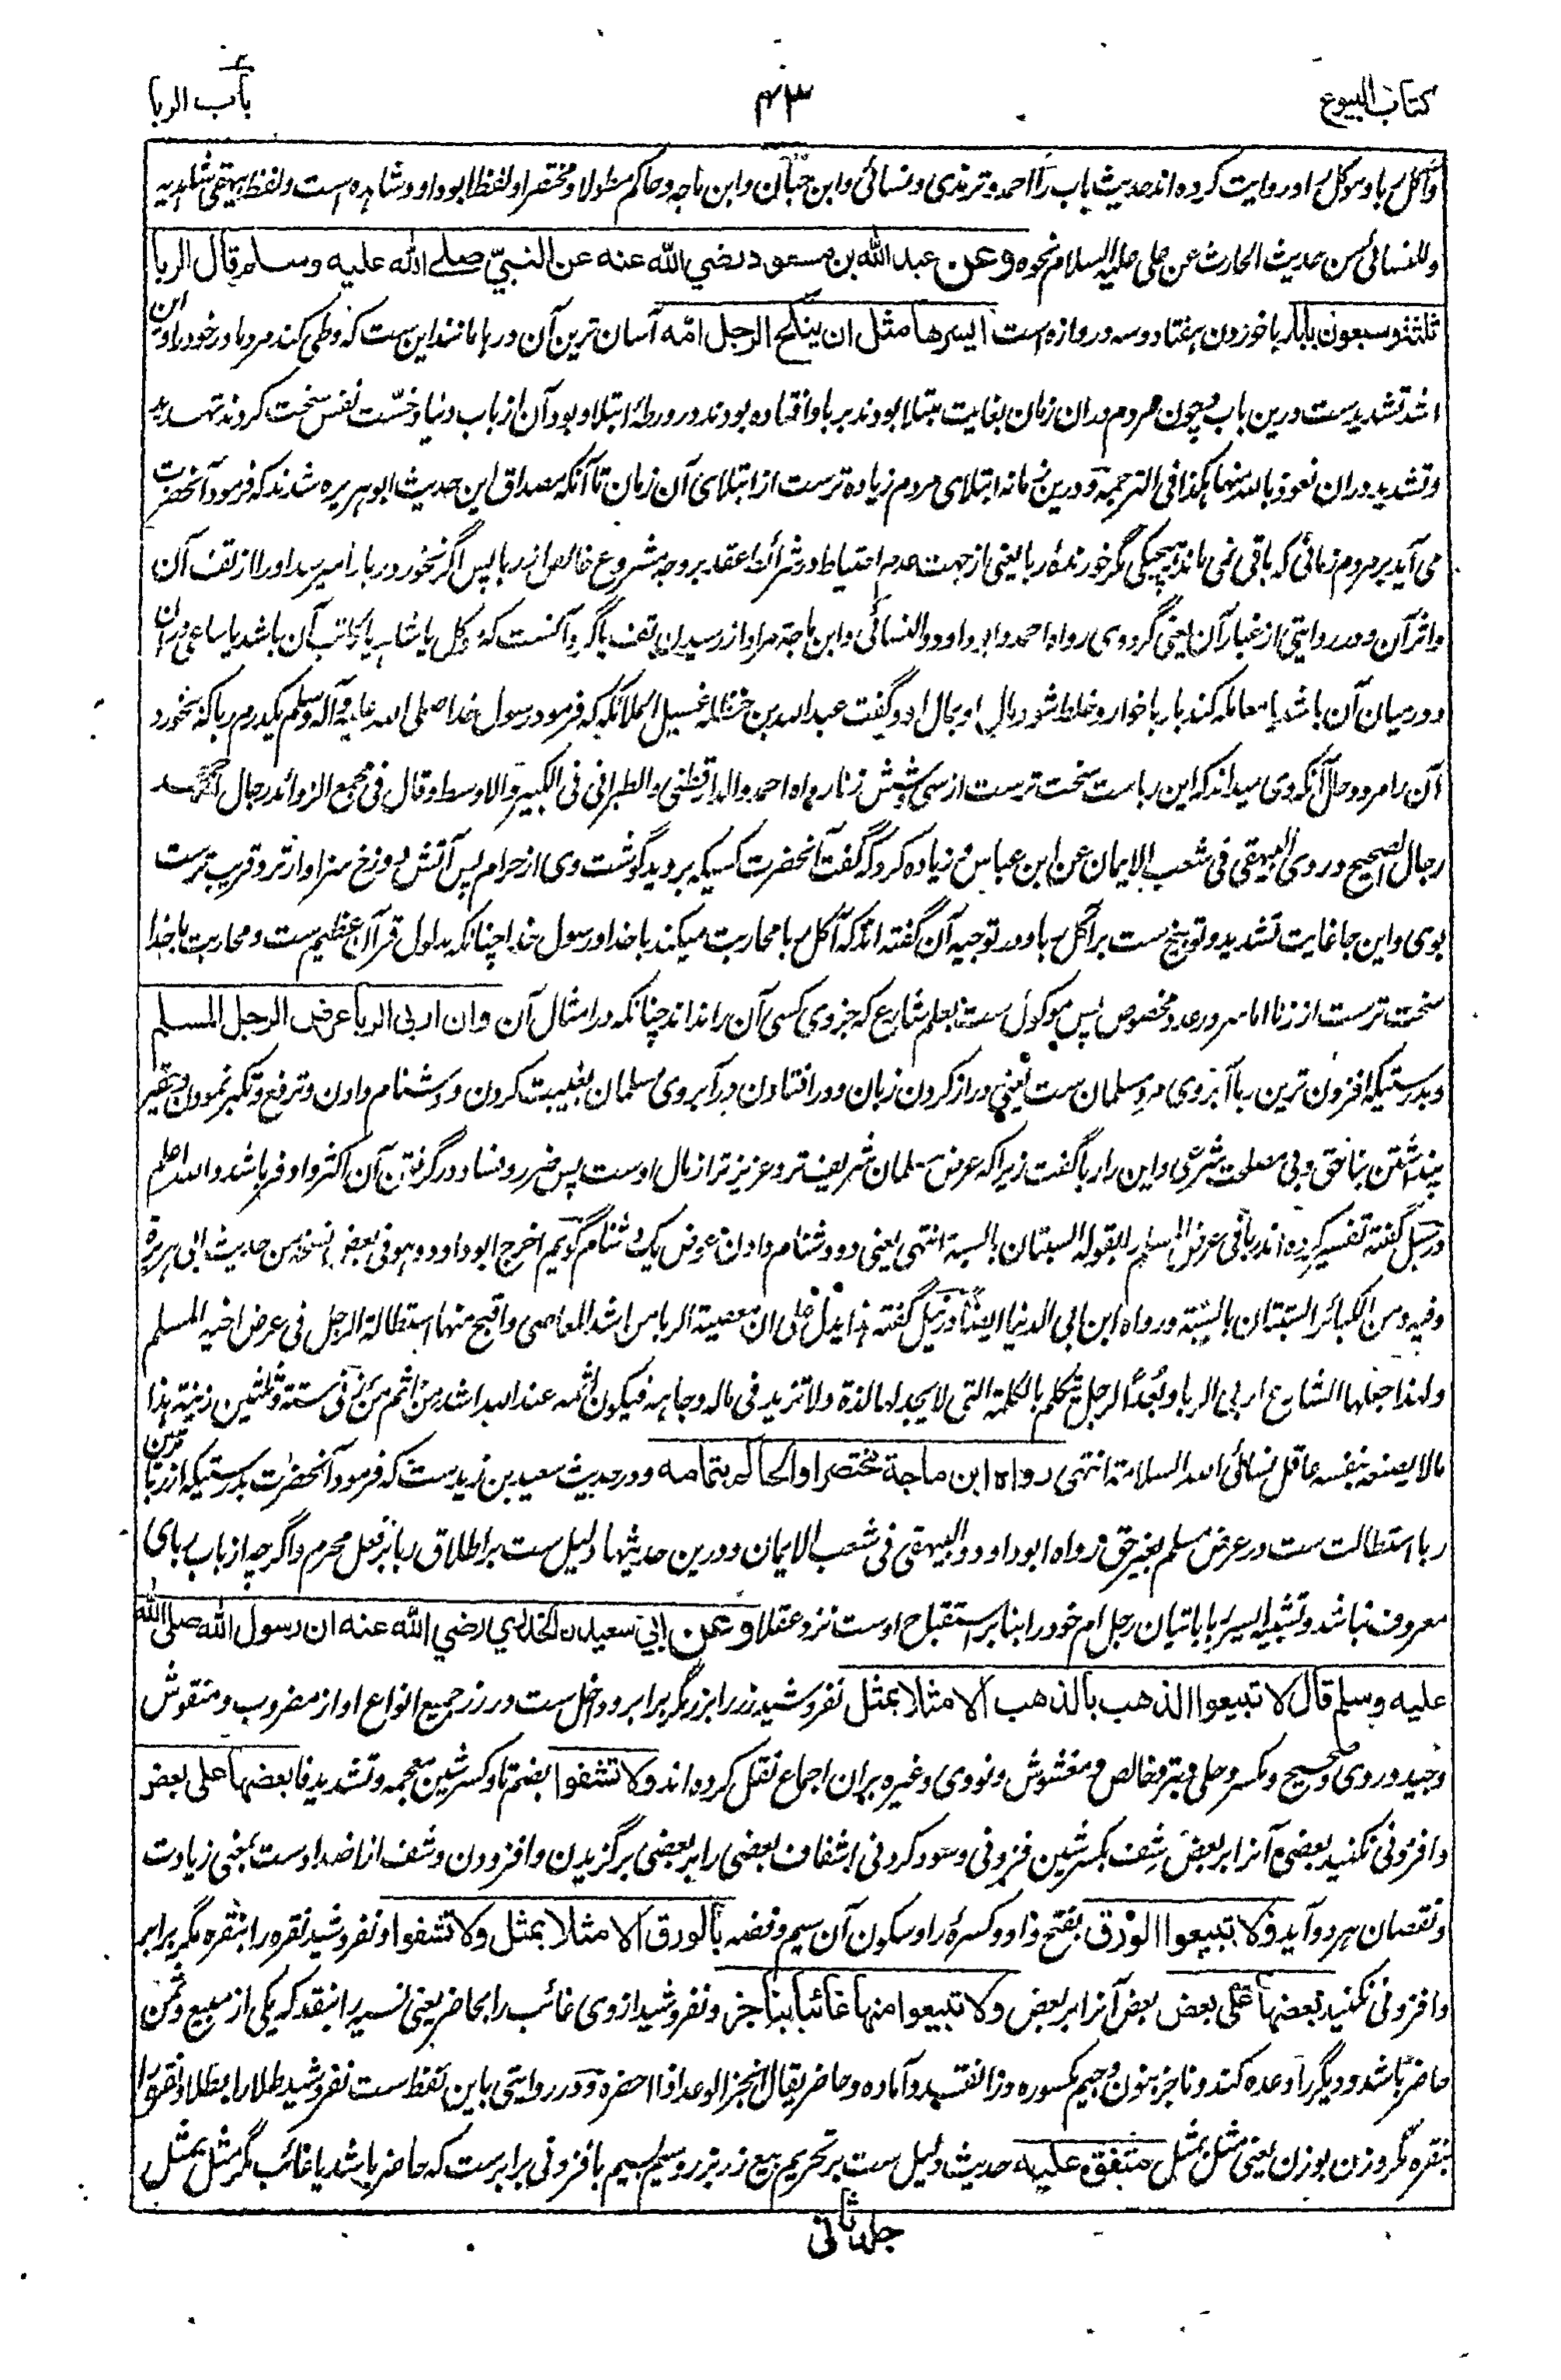 كتاب البيوع ۴۳ باب الربا
وآكل ربا و موكل او روایت کرده اند حدیث باب را احمد و ترمذی و نسائی و ابن حبان و ابن ماجه و حاکم مطولا و مختصرا و لفظ ابو داود شاهده است و لفظ بیهقی شاهدیه
و للنسائی من حدیث الحارث عن علی علیه السلام نحوه وعن عبد الله بن مسعود رضي الله عنه عن النبيّ صلے الله عليه وسلم قال الربا
ثلثة وسبعون بابا ربا خوردن هفتاد و سه دروازه است ايسرها مثل ان ينكح الرجل امّه آسان ترین آن درها مانند این ست که وطی کند مرد مادر خود را و این
اشد تشدید ست درین باب و چون مردم دران زمان بغایت مبتلا بودند بربا و افتاده بودند در ورطهٔ ابتلا و بود آن از باب دنیا و خسّت نفس سخت کردند تهدید
و تشدید دران نعوذ بالله منها هکذا فی الترجمه و درین زمانه ابتلای مردم زیاده ترست از ابتلای آن زمان تا آنکه مصداق این حدیث ابو هریره شدند که فرمود آنحضرت
می آید بر مردم زمانی که باقی نمی ماند هیچیکی مگر خورندهٔ ربا یعنی از جهت عدم احتیاط در شرائط عقد بر وجه مشروع خالص از ربا پس اگر نخورد ربا را میرسد او را از تف آن
و اثر آن و در روایتی از غبار آن یعنی گرد وی رواه احمد و ابو داود و النسائی و ابن ماجة مراد از رسیدن تف یا گرد آنست که موکل یا شاهد یا کاتب آن باشد یا ساعی دران
و در میان آن باشد یا معامله کند با ربا خوار و خلط شود مال او بمال او و گفت عبد الله بن حنظله غسیل الملائکه که فرمود رسول خدا صلی الله علیه و آله و سلم یکدرم ربا که بخورد
آن را مرد و حال آنکه وی میداند که این رباست سخت ترست از سی و شش زنا رواه احمد و الدارقطنی و الطبرانی فی الکبیر و الاوسط و قال فی مجمع الزوائد رجال احمد
رجال الصحیح و روی البیهقی فی شعب الایمان عن ابن عباس و زیاده کرد که گفت آنحضرت کسیکه بروید گوشت وی از حرام پس آتش دوزخ سزاوارتر و قریب ترست
بوی و این جا غایت تشدید و توبیخ ست بر آکل ربا و در توجیه آن گفته اند که آکل ربا محاربت میکند با خدا و رسول خدا چنانکه مدلول قرآن عظیم ست و محاربت با خدا
سخت ترست از زنا اما سر ورود عدد مخصوص پس موکول ست بعلم شارع که جز وی کسی آن را نداند چنانکه در امثال آن وان اربى الربا عرض الرجل المسلم
و بدرستیکه افزون ترین ربا آبروی مرد مسلمان ست یعنی دراز کردن زبان و در افتادن در آبروی مسلمان بغیبت کردن و دشنام دادن و ترفع و تکبر نمودن و حقیر
پنداشتن بناحق و بی مصلحت شرعی و این را ربا گفت زیرا که عرض مسلمان شریف تر و عزیز تر از مال اوست پس ضرر و فساد در گرفتن آن اکثر و اوفر باشد و الله اعلم
در سبل گفته تفسیر کرده اند ربا فی عرض المسلم را بقوله السبتان بالسبة انتهی یعنی دو دشنام دادن عوض یک دشنام گویم اخرج ابو داود و هو فی بعض نسخه من حدیث ابی هریرة
و فیه و من الکبائر السبتان بالسبة و رواه ابن ابی الدنیا ایضا در نیل گفته هذا یدل علی ان معصیة الربا من اشد المعاصی و اقبح منها استطالة الرجل فی عرض اخیه المسلم
و لهذا جعلها الشارع اربی الربا و بعد الرجل یتکلم بالکلمة التی لا یجد لها لذة و لا تزید فی ماله و جاهه فیکون اثمه عند الله اشد من اثم من زنی ستة و ثلثین زنیة هذا
ما لا یصنعه بنفسه عاقل نسأل الله السلامة انتهی رواه ابن ماجة مختصرا والحاكم بتمامه و در حدیث سعید بن زید ست که فرمود آنحضرت بدرستیکه از ربا ترین
ربا استطالت ست در عرض مسلم بغیر حق رواه ابو داود و البیهقی فی شعب الایمان و درین حدیثها دلیل ست بر اطلاق ربا بر فعل محرم و اگر چه از باب ربای
معروف نباشد و تشبیه ایسر ربا باتیان رجل ام خود را بنا بر استقباح اوست نزد عقلا وعن ابي سعيدن الخدري رضي الله عنه ان رسول الله صلى الله
عليه وسلم قال لا تبيعوا الذهب بالذهب الا مثلا بمثل نفروشید زر را بزر مگر برابر و داخل ست در زر جمیع انواع او از مضروب و منقوش
و جید و روی و صحیح و مکسر و حلی و تبر و خالص و مغشوش و نووی و غیره بران اجماع نقل کرده اند ولا تشفوا بضم تا و کسر شین معجمه و تشدید فا بعضها على بعض
و افزونی نکنید بعضی آنرا بر بعض شِف بکسر شین فزونی و سود کردنی اشفاف بعضی را بر بعضی برگزیدن و افزودن و شف از اضداد ست بمعنی زیادت
و نقصان هر دو آید ولا تبيعوا الورق بفتح واو و کسر را و سکون آن سیم و فضه بالورق الا مثلا بمثل ولا تشفوا و نفروشید نقره را بنقره مگر برابر
و افزونی نکنید بعضها على بعض بعض آنرا بر بعض ولا تبيعوا منها غائبا بناجز و نفروشید از وی غائب را بحاضر یعنی نسیه را بنقد که یکی از مبیع و ثمن
حاضر باشد و دیگر را وعده کنند و ناجز بنون و جیم مکسوره و زا نقد و آماده و حاضر یقال انجز الوعد اذا احضره و در روایتی باین لفظ ست نفروشید طلا را بطلا و نقره را
بنقره مگر وزن بوزن یعنی مثل بمثل متفق عليه حدیث دلیل ست بر تحریم بیع زر بزر و سیم بسیم با فزونی برابرست که حاضر باشد یا غائب مگر مثل بمثل
جلد ثانی